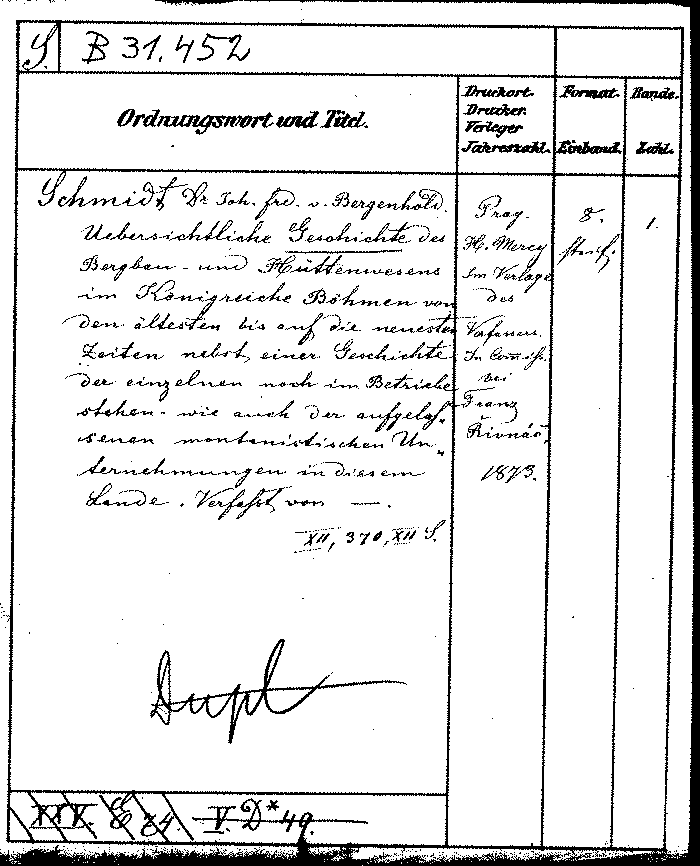 S. B 31.452
Ordnungswort und Titel.
Druckort.
Drucker.
Verleger
Jahreszahl.
Format.
Einband.
Bände.
Zahl.
Schmidt, Dr Joh. frd. v. Bergenhold.
Uebersichtliche Geschichte des
Bergbau- und Hüttenwesens
im Königreiche Böhmen von
den ältesten bis auf die neuesten
Zeiten nebst einer Geschichte
der einzelnen noch im Betriebe
stehen- wie auch der aufgelas-
senen montanistischen Un-
ternehmungen in diesem
Lande. Verfasst von —.
XII, 370, XII S.
Prag.
H. Mercy
Im Verlage
des
Verfassers.
In Commiss.
bei
Franz
Řivnáč.
1873.
8.
steif.
1.
Dupl
XIV. E 34. V. D* 49.